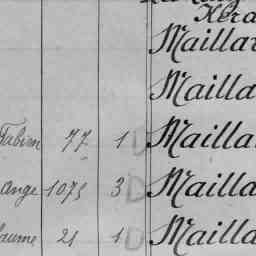 Maillar
Mailla
Fabien 77 1 D Maillar
ange 1075 3 D Mailla
aume 21 1 D Mailla